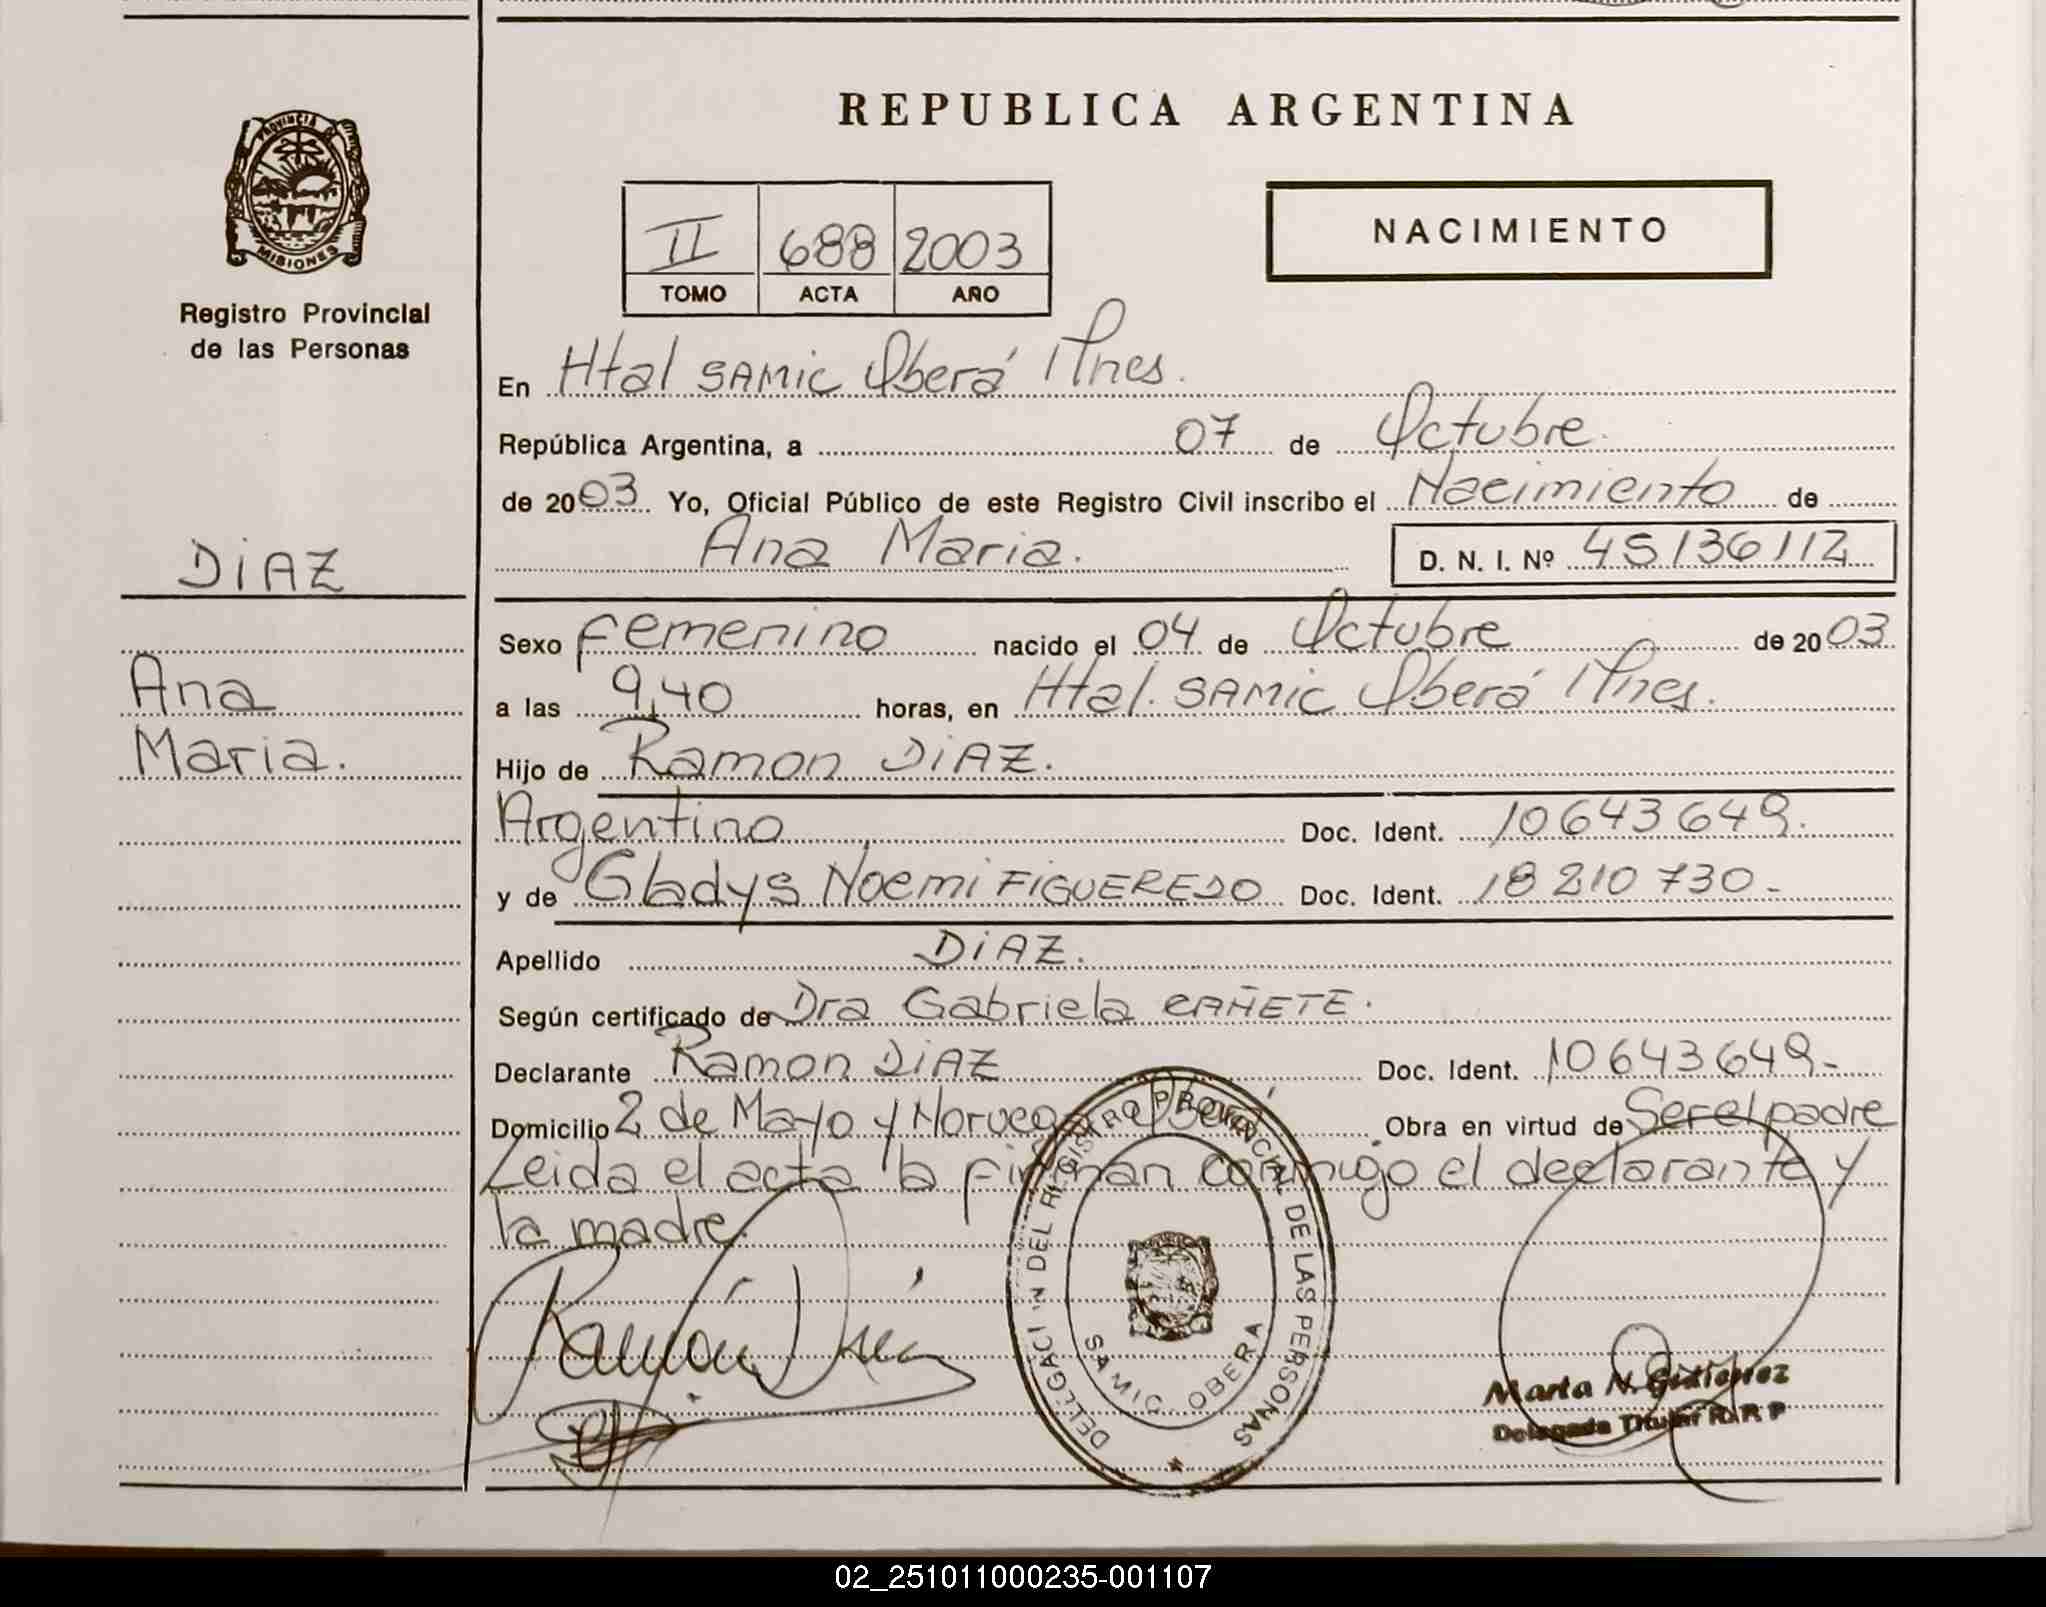 REPUBLICA ARGENTINA
PROVINCIA DE
MISIONES
Registro Provincial
de las Personas
II 688 2003
TOMO ACTA AÑO
NACIMIENTO
En Htal SAMIC Oberá Mnes.
República Argentina, a 07 de Octubre.
de 2003. Yo, Oficial Público de este Registro Civil inscribo el Nacimiento de
Ana Maria. D. N. I. Nº 45136112
DIAZ
Ana
Maria.
Sexo Femenino nacido el 04 de Octubre de 2003.
a las 9,40 horas, en Htal. SAMIC Oberá Mnes.
Hijo de Ramon DIAZ.
Argentino Doc. Ident. 10643649.
y de Gladys Noemi FIGUEREDO Doc. Ident. 18210730-
Apellido DIAZ.
Según certificado de Dra Gabriela CAÑETE.
Declarante Ramon DIAZ Doc. Ident. 10643649-
Domicilio 2 de Mayo y Noruega Oberá Obra en virtud de Ser el padre
Leida el acta la firman conmigo el declarante y
la madre.
Ramón Díaz
DELEGACI N DEL REGISTRO PROVINCIAL DE LAS PERSONAS
SAMIC OBERA
Marta N. Gutierrez
Delegada Titular R. P. P
02_251011000235-001107